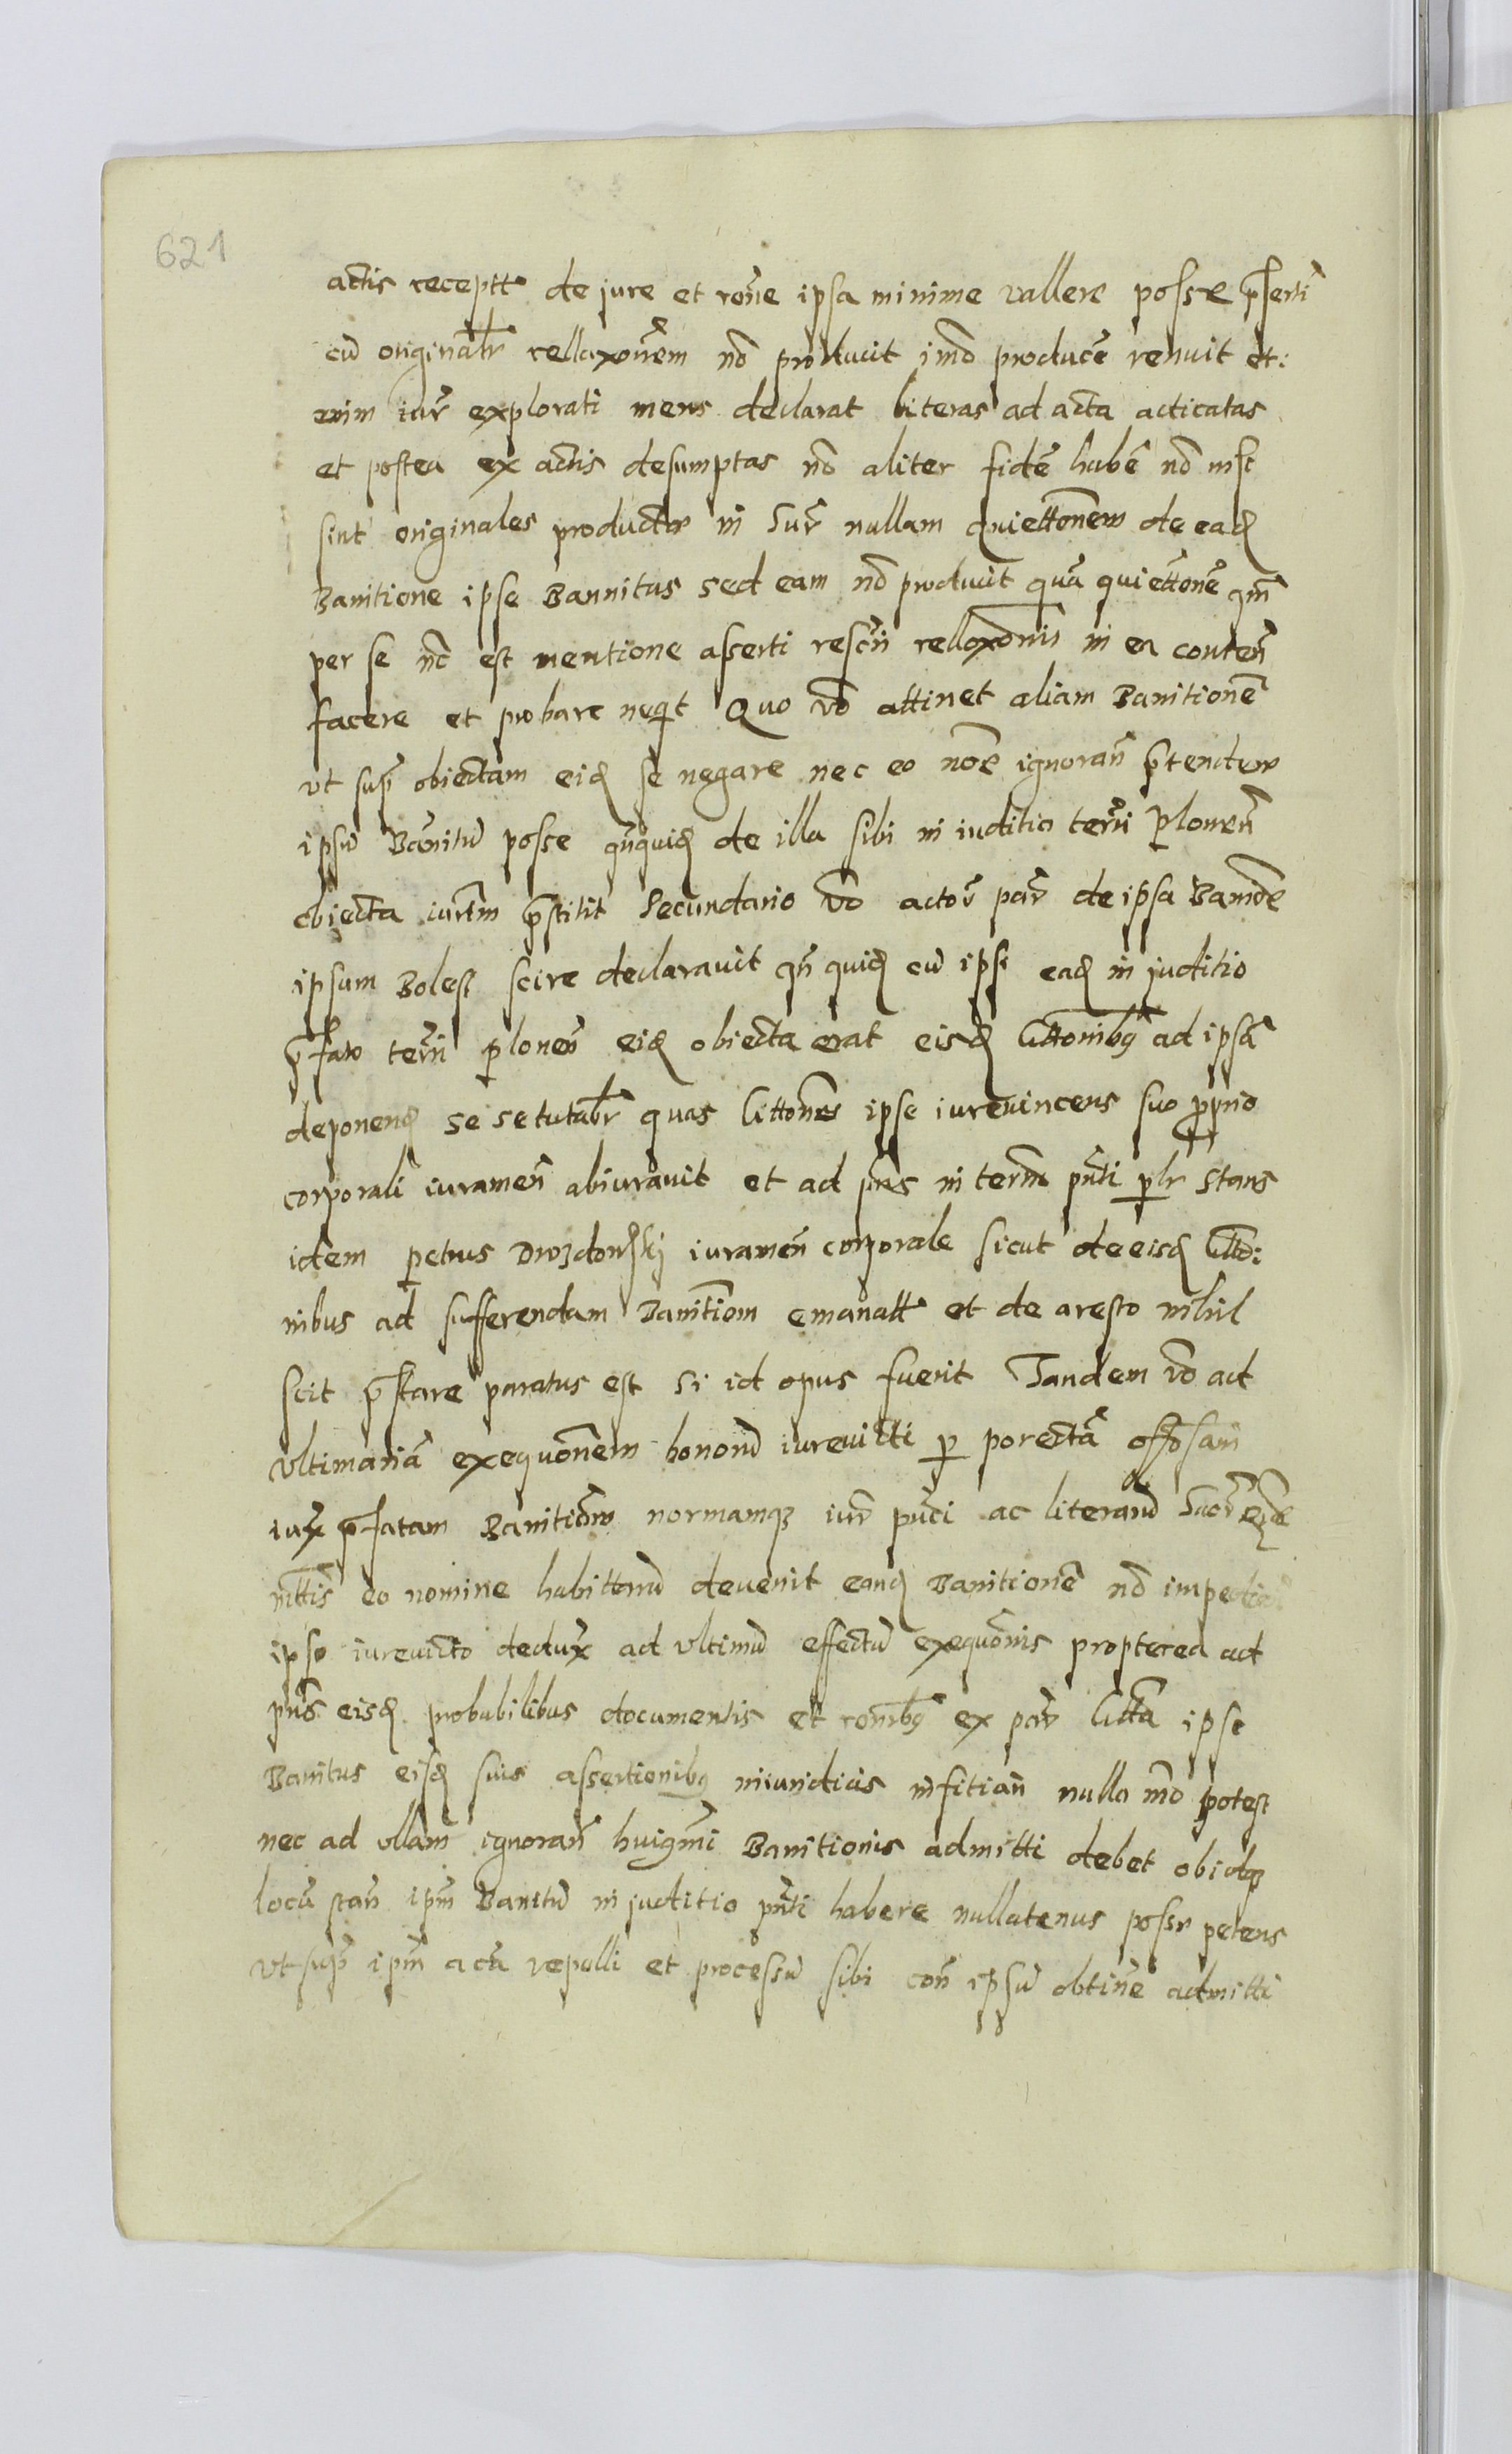 621
actis receptt de jure et rone ipsa minime vallere posse pserti
cu originalr rellaxonem no producit imo produce renuit et:
enim iur explorati mens declarat literas ad acta acticatas
et postea ex actis desumptas no aliter fide habe no nisi
sint originales producte in Jur nullam quiettonem de ead
Banitione ipse Bannitus sed eam no producit qua quiettone qm
per se nc est mentione asserti rescn rellaxonis in ea conten
facere et probare neqt Quo vo attinet aliam Banitione
vt sup obiectam eid se negare nec eo noe ignoran ptendere
ipsu Banitu posse qnquid de illa sibi in iuditio termi plonen
obiecta iurtm pstitit Secundario vo actor par de ipsa Banoe
ipsam Bolest scire declaravit qn quid cu ipsi ead in juditio
pfato termi plonen eid obiecta erat eisd Cittonibq ad ipsa
deponend se se tutabr quas Cittones ipse iurevincens suo ppno
corporali iuramen abiuravit et ad pns in termo pnti plr stans
idem petrus Drozdowskj iuramen corporale sicut de eisd Citto:
nibus ad sufferendam Banitiom emanatt et de aresto nihil
scit pstare paratus est si id opus fuerit Tandem vo ad
vltimaria exequonem bonoru iurevicti p porecta offosam
iux pfatam Banitiom normamq iur pnti ac literaru
eo nomine habittaru devenit eand Banitione no
ipso iurevicto dedux ad vltimu effectu exequonis propterea ad
pns eisd probabilibus documentis et ronibq ex par Citta ipse
Banitus eisd suis assertionibq iniuridicis infitian nullo mo potest
nec ad vllam ignoran huigmi Banitionis admitti debet obidq
locu stan ipm Banitu in juditio pnti habere nullatenus posse petens
vt sup ipm a ca repelli et processu sibi con ipsu obtine admitti